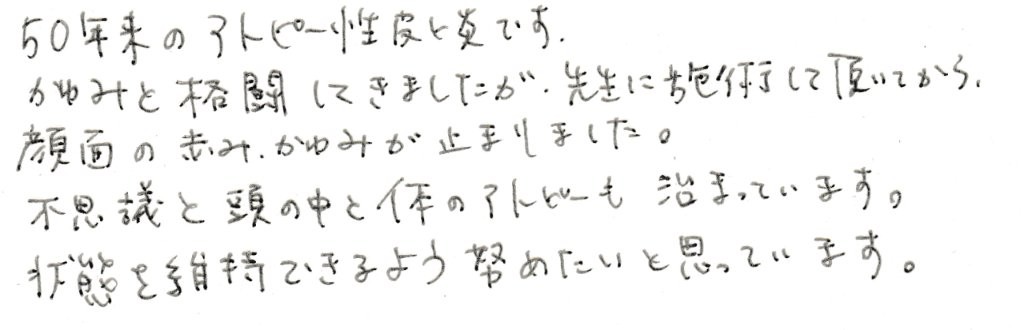 50年来のアトピー性皮ヒ炎です.
かゆみと格闘してきましたが.先生に施術して頂いてから.
顔面の赤み.かゆみが止まりました。
不思議と頭の中と体のアトピーも治まっています。
状態を維持できるよう努めたいと思っています。